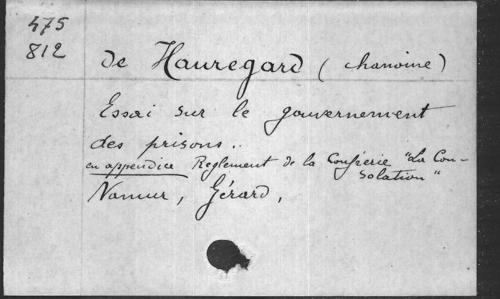 475
812
de Hauregard (chanoine)
Essai sur le gouvernement
des prisons..
en appendice Reglement de la Confrérie "La Con-
solation"
Namur, Gérard,